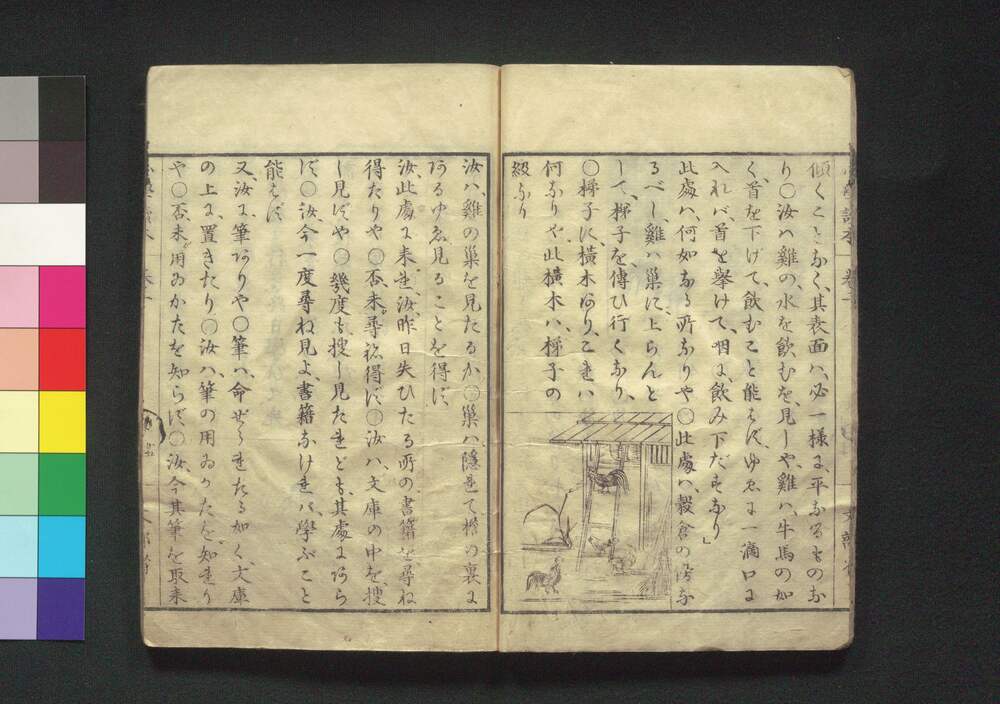 傾くことなく、其表面ハ、必一様に、平なるものな
り○汝ハ雞の、水を飲むを、見しや、雞ハ、牛馬の如
く、首を下げて、飲むこと能はず、ゆゑに一滴口に
入れバ、首を擧けて、咽に、飲み下だすなり」
此處ハ、何如なる所なりや○此處ハ、穀倉の階な
るべし、雞ハ巣に、上らんと
して、梯子を、傳ひ行くなり、
○梯子に、横木あり、これハ
何なりや、此横木ハ、梯子の
級なり
汝ハ、雞の巣を見たるか○巣ハ、隠れて、の裏に
あるゆゑ見ることを得ず、
汝、此處に来れ、汝、昨日失ひたる所の書籍を尋ね
得たりや○否、未、尋ね得ず○汝ハ、文庫の中を、捜
し見ずや○幾度も、捜し見たれども、其處にあら
ず、○汝、今一度尋ね見よ、書籍なけれバ、學ぶこと
能はず
又、汝に、筆ありや○筆ハ、命ぜられたる如く、文庫
の上に、置きたり○汝ハ、筆の用ゐかたを、知れり
や○否、未、用ゐかたを知らず、○汝、今其筆を取来